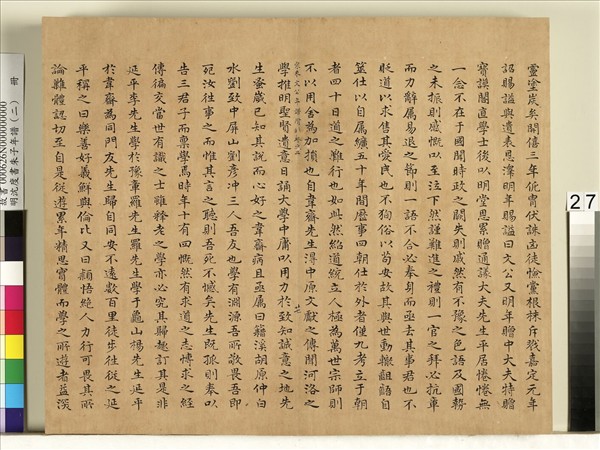 靈塗炭矣開僖三年侂胄伏誅凶徒憸黨根株斥戮嘉定元年
詔賜諡與遺表恩澤明年賜諡曰文公又明年贈中大夫特贈
寶謨閣直學士後以明堂恩累贈通議大夫先生平居惓惓無
一念不在于國聞時政之闕失則戚然有不豫之色語及國勢
之未振則感慨以至泣下然謹難進之禮則一官之拜必抗章
而力辭厲易退之節則一語不合必奉身而亟去其事君也不
貶道以求售其愛民也不狗俗以苟安故其與世動輒齟齬自
筮仕以至属纊五十年間歷事四朝仕於外者僅九考立于朝
者四十日道之難行也如此然紹道統立人極為萬世宗師則
不以用舍為加損也自韋齋先生得中原文獻之傳聞河洛之
學推明聖賢遺意日誦大學中庸以用力於致知誠意之地先
生蚤歲已知其說而心好之韋齋病且亟屬曰籍溪胡原仲白
水劉致中屏山劉彥冲三人吾友也學有淵源吾所敬畏吾即
死汝往事之而惟其言之聽則吾死不憾矣先生既孤則奉以
告三君子而稟學焉時年十有四慨然有求道之志博求之經
傳徧交當世有識之士雖釋老之學亦必究其歸趣訂其是非
延平李先生學於豫章羅先生羅先生學于龜山楊先生延平
於韋齋為同門友先生歸自同安不遠數百里徒步往從之延
平稱之曰樂善好義鮮與倫比又曰穎悟絕人力行可畏其所
論難體認切至自是從遊累年精思實體而學之所造者益深
27
南
明沈度書朱子年譜(二)
故書000626N000000000